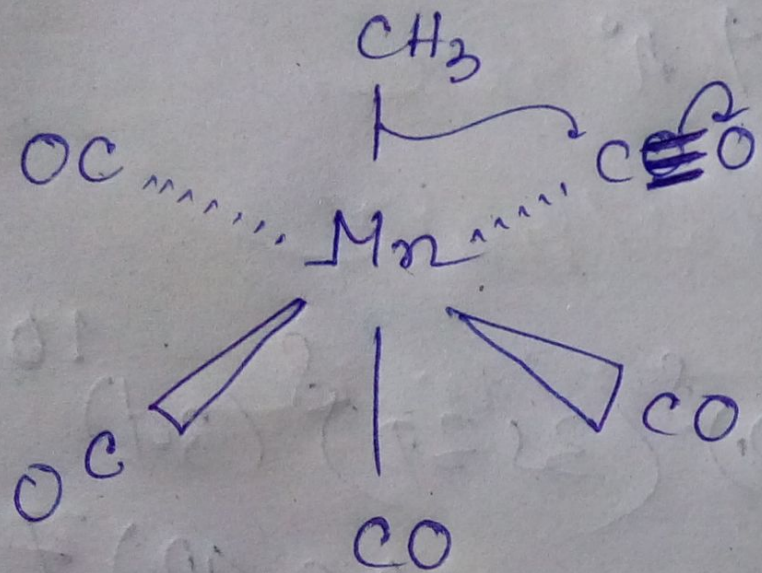 CH3
OC
C≡O
Mn
OC
CO
CO